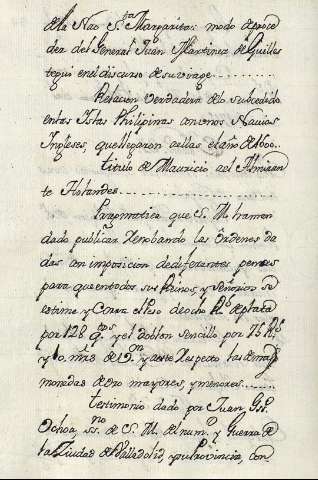 dela Nao S.ta Margarita: modo de proce
der del General Juan Martinez de Guilles
tegui en el discurso de su viage..........
Relacion verdadera de lo subcedido
en las Islas Philipinas con unos Navios
Ingleses, que llegaron a ellas el año de 1600..
titulo de Mauricio a el Almiran
te Holandes................
Pragmatica que S. M. ha man
dado publicar renobando las Ordenes da
das con imposicion de diferentes penas
para que en todos sus Reinos, y Señorios se
estime y Corra el Peso de ocho Rs. de plata
por 128 q.tos y el doblon sencillo por 75 Rs.
y 10. mrs de Vn y a este Respecto las demas
monedas de oro mayores, y menores......
testimonio dado por Juan,
Ochoa, ss.no de S. M. del num.o y Guerra de
la Ciudad de Valladolid, y su Provincia, con